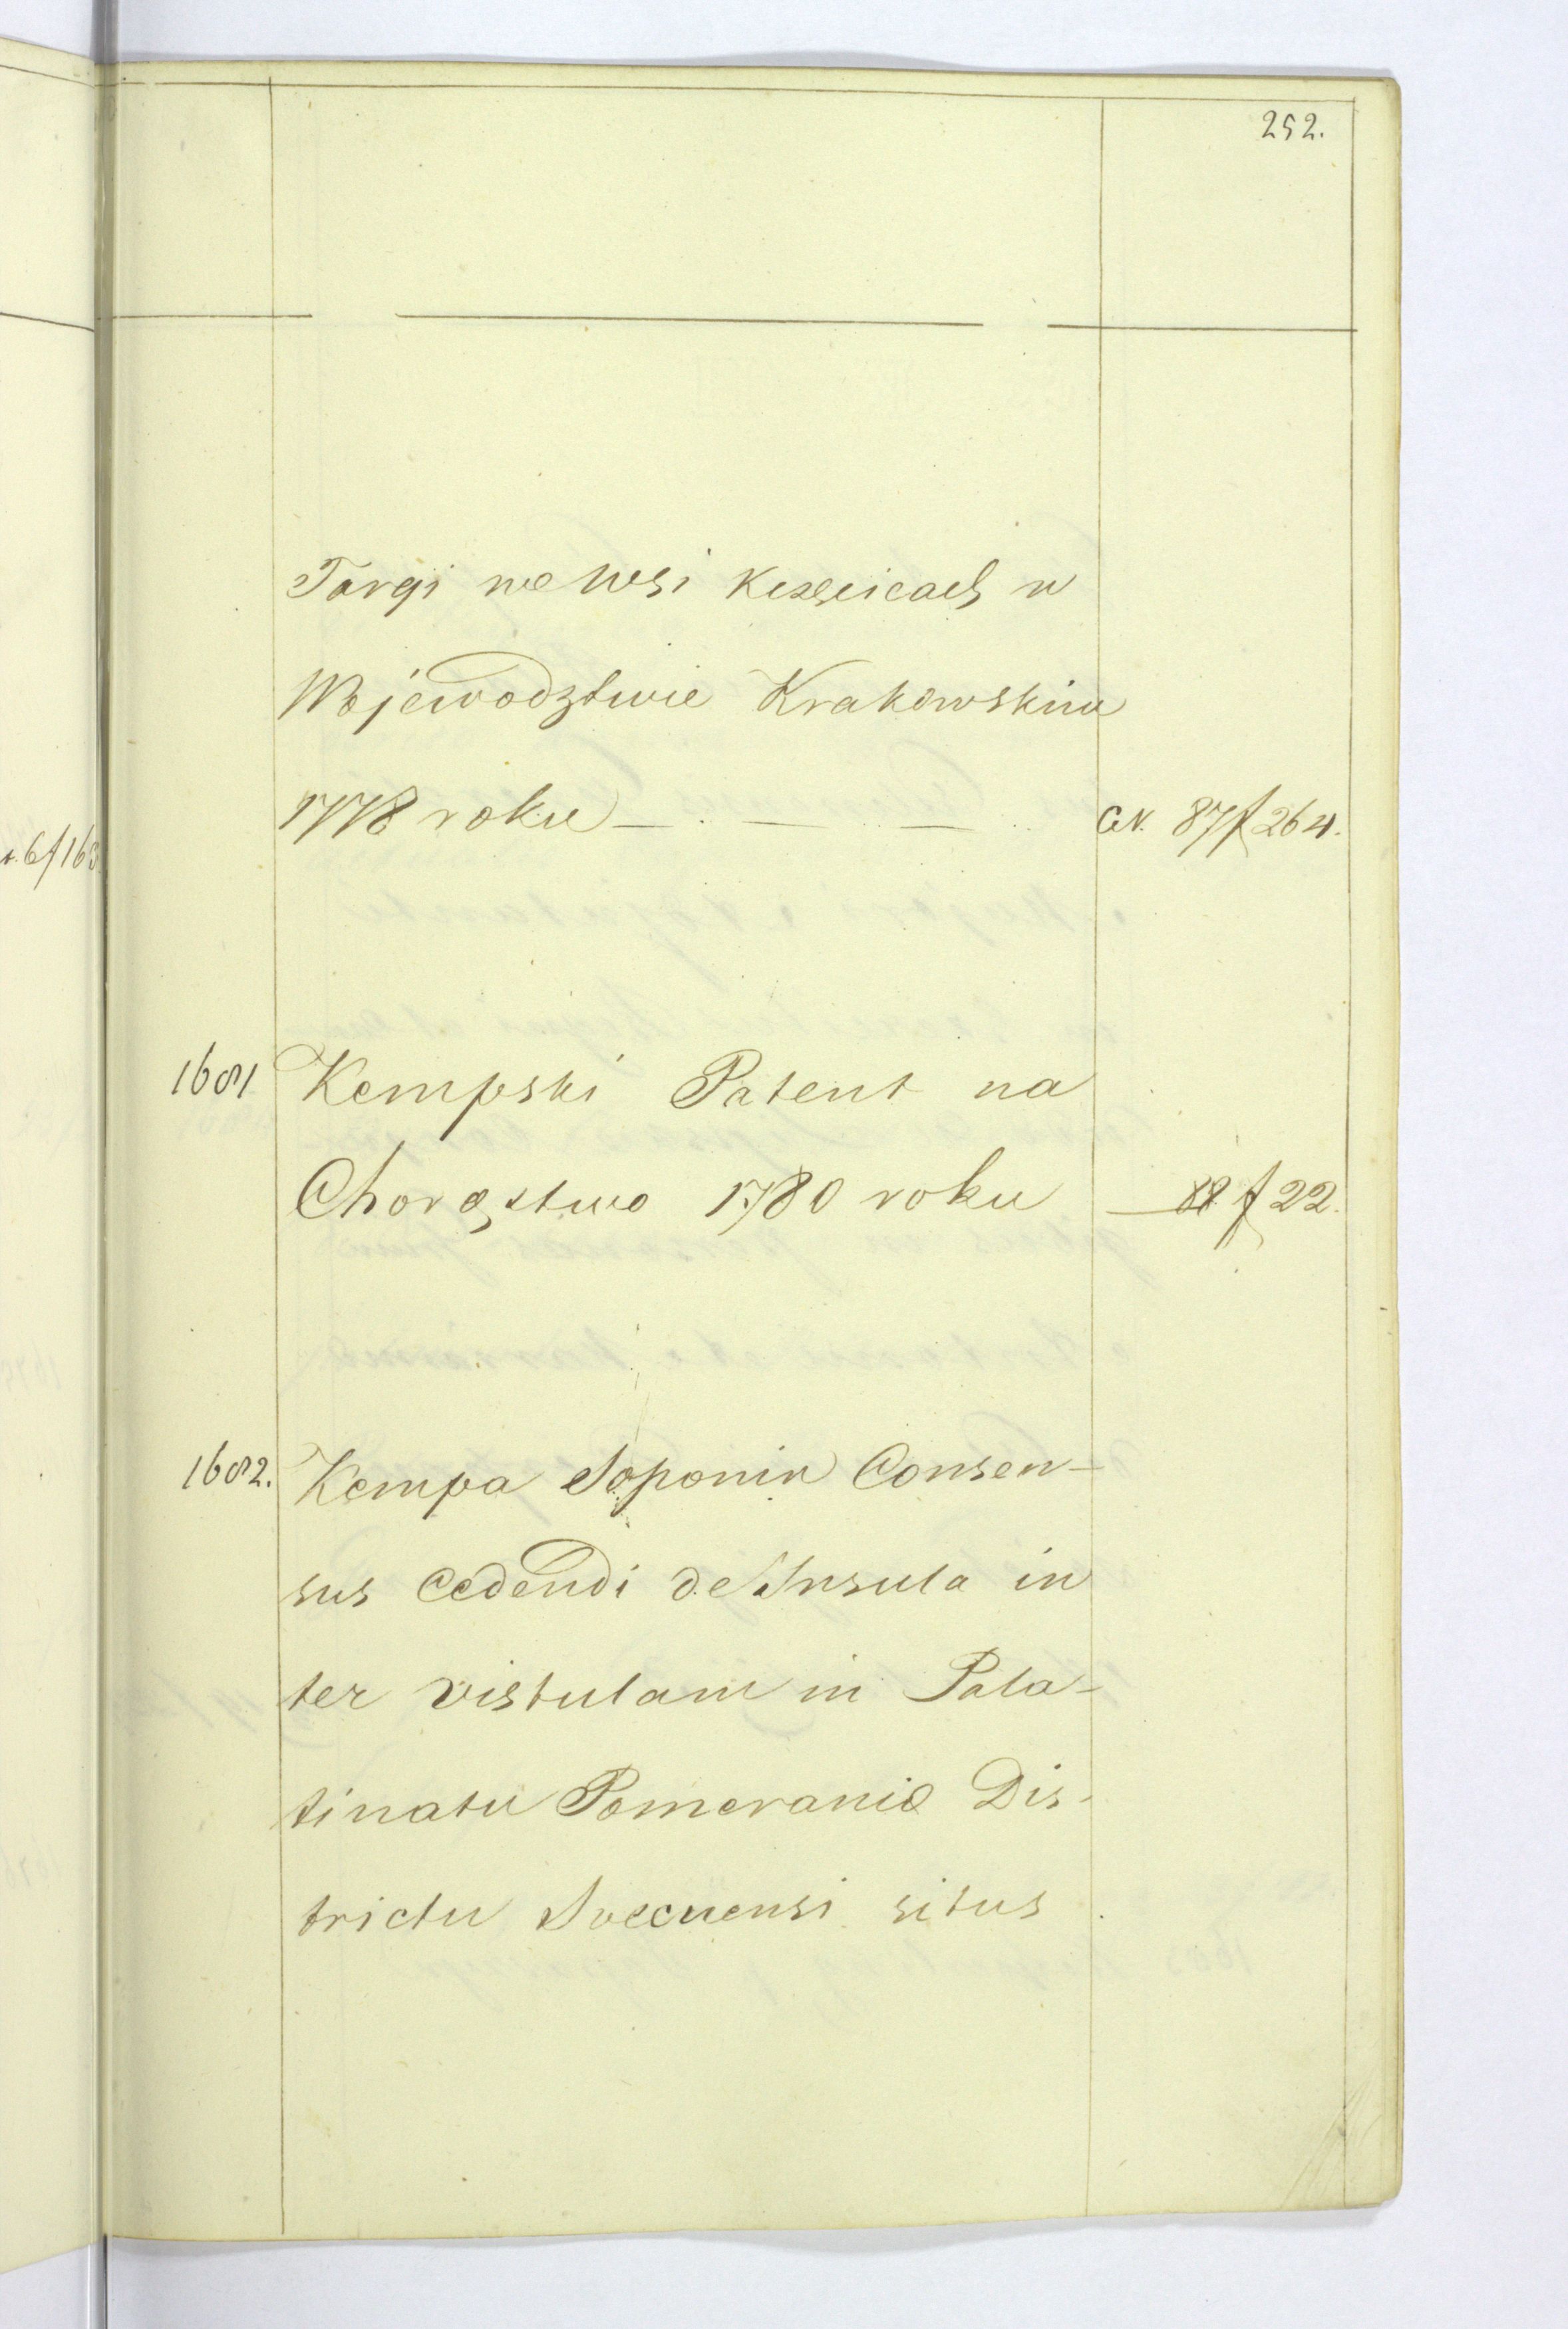 252.
Targi we wsi Kesseicach w
Wojewodztwie Krakowskim
1778 roku — . — . — . . CN. 87 f 264.
1681 Kempski Patent na
Chorąstwo 1780 roku — 88 f 22.
1682. Kempa Soponin Consen-
sus cedendi de Insula in
ter vistulam in Pala-
tinatu Pomeraniæ Dis-
trictu Svecuensi situs
6 f 163